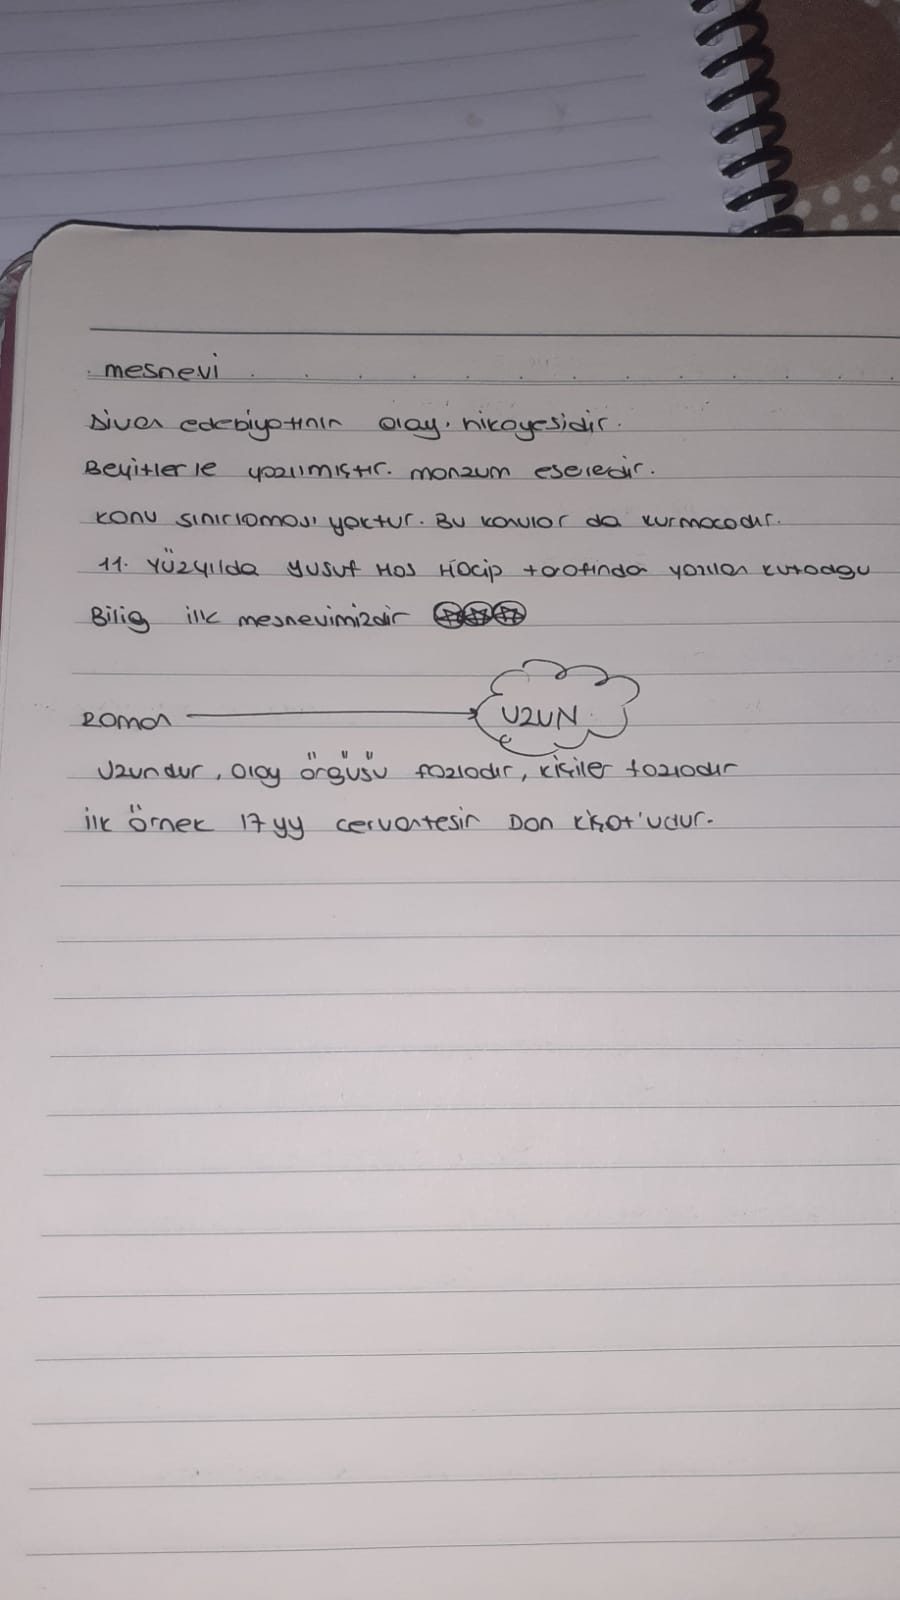 mesnevi
Divan edebiyatının olay hikayesidir.
Beyitlerle yazılmıştır. manzum eserledir.
konu sınırlaması yoktur. Bu konular da kurmacadır.
11. Yüzyılda Yusuf Has Hacip tarafından yazılan kutadgu
Bilig ilk mesnevimizdir
Roman → UZUN
Uzundur, Olay örgüsü fazladır, kişiler fazladır
ilk örnek 17 yy cervantesin Don kişot'udur.